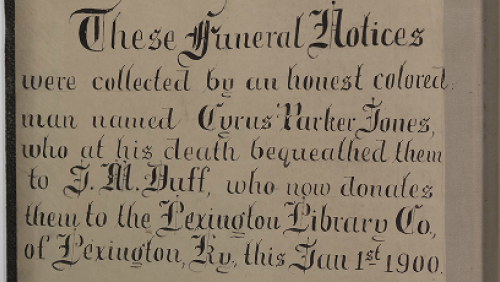 These Funeral Notices
were collected by an honest colored
man named Cyrus Parker Jones,
who at his death bequeathed them
to J. M. Duff, who now donates
them to the Lexington Library Co.,
of Lexington, Ky., this Jan 1st 1900.